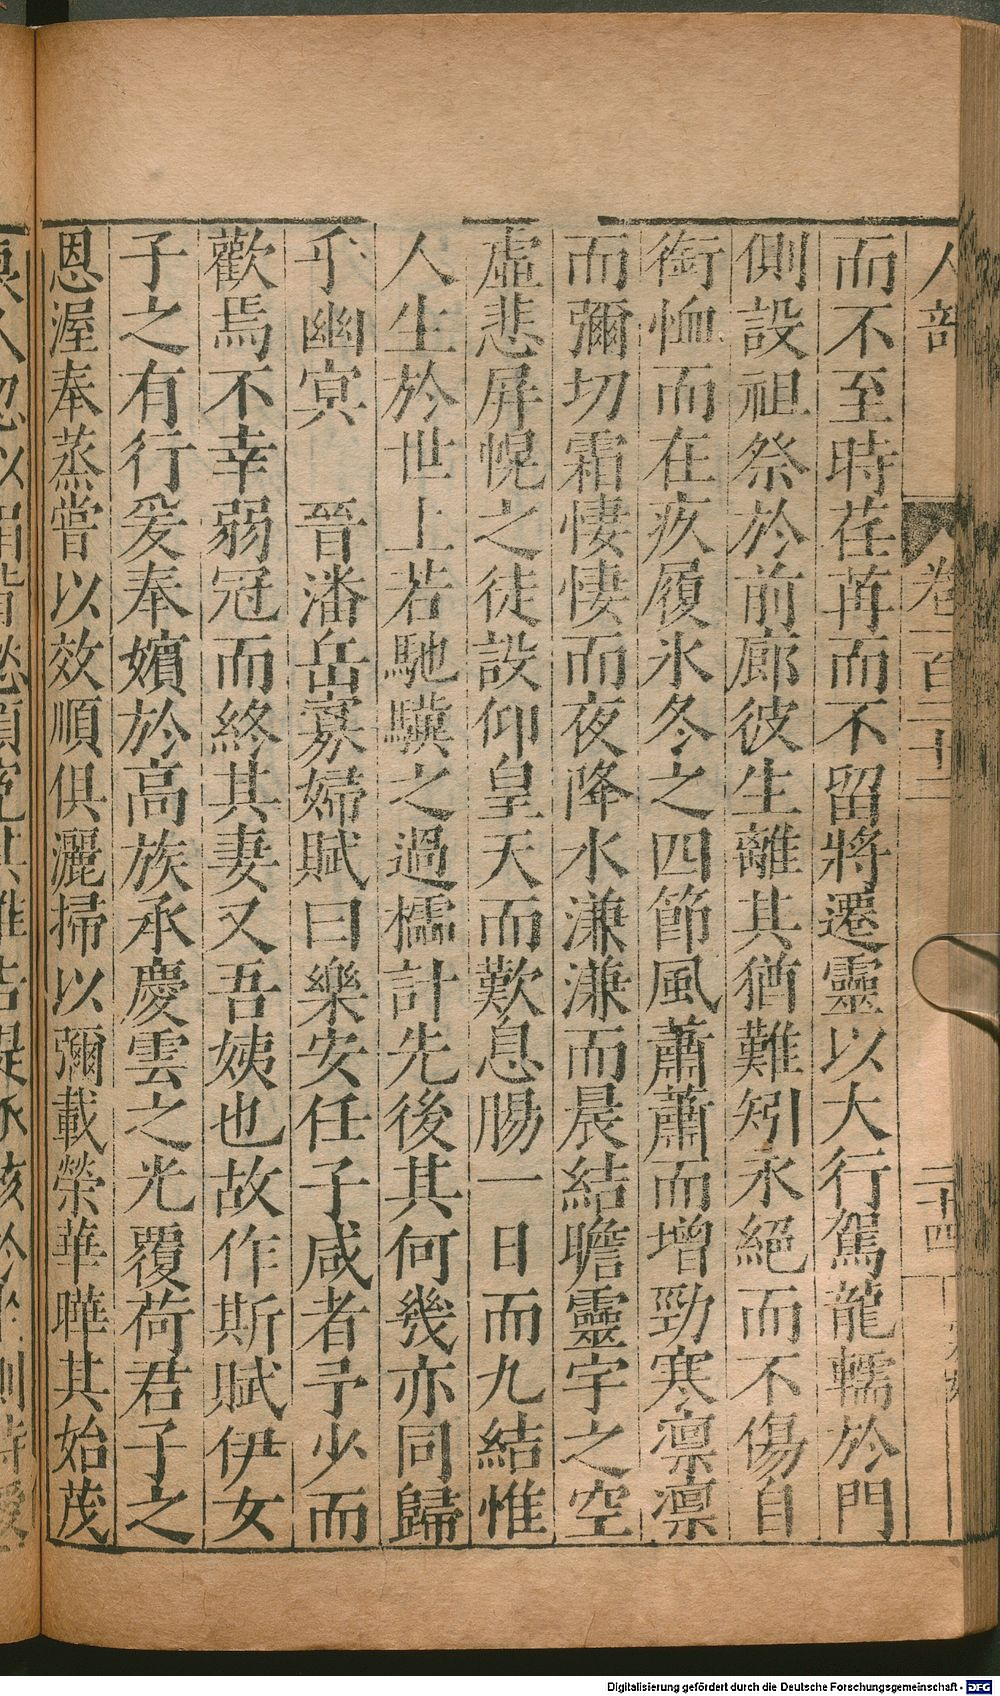 人部 卷一百二十三 二十四
而不至時荏苒而不留將遷靈以大行駕龍轜於門
側設祖祭於前廊彼生離其猶難矧永絕而不傷自
銜恤而在疚履氷冬之四節風蕭蕭而增勁寒凛凛
而彌切霜悽悽而夜降水溓溓而晨結瞻靈宇之空
虛悲屏幌之徒設仰皇天而歎息膓一日而九結惟
人生於世上若馳驥之過櫺計先後其何幾亦同歸
乎幽㝠 晉潘岳寡婦賦曰樂安任子咸者予少而
歡焉不幸弱冠而終其妻又吾姨也故作斯賦伊女
子之有行爰奉嬪於高族承慶雲之光覆荷君子之
恩渥奉蒸嘗以效順俱灑掃以彌載榮華曄其始茂
Digitalisierung gefördert durch die Deutsche Forschungsgemeinschaft - DFG